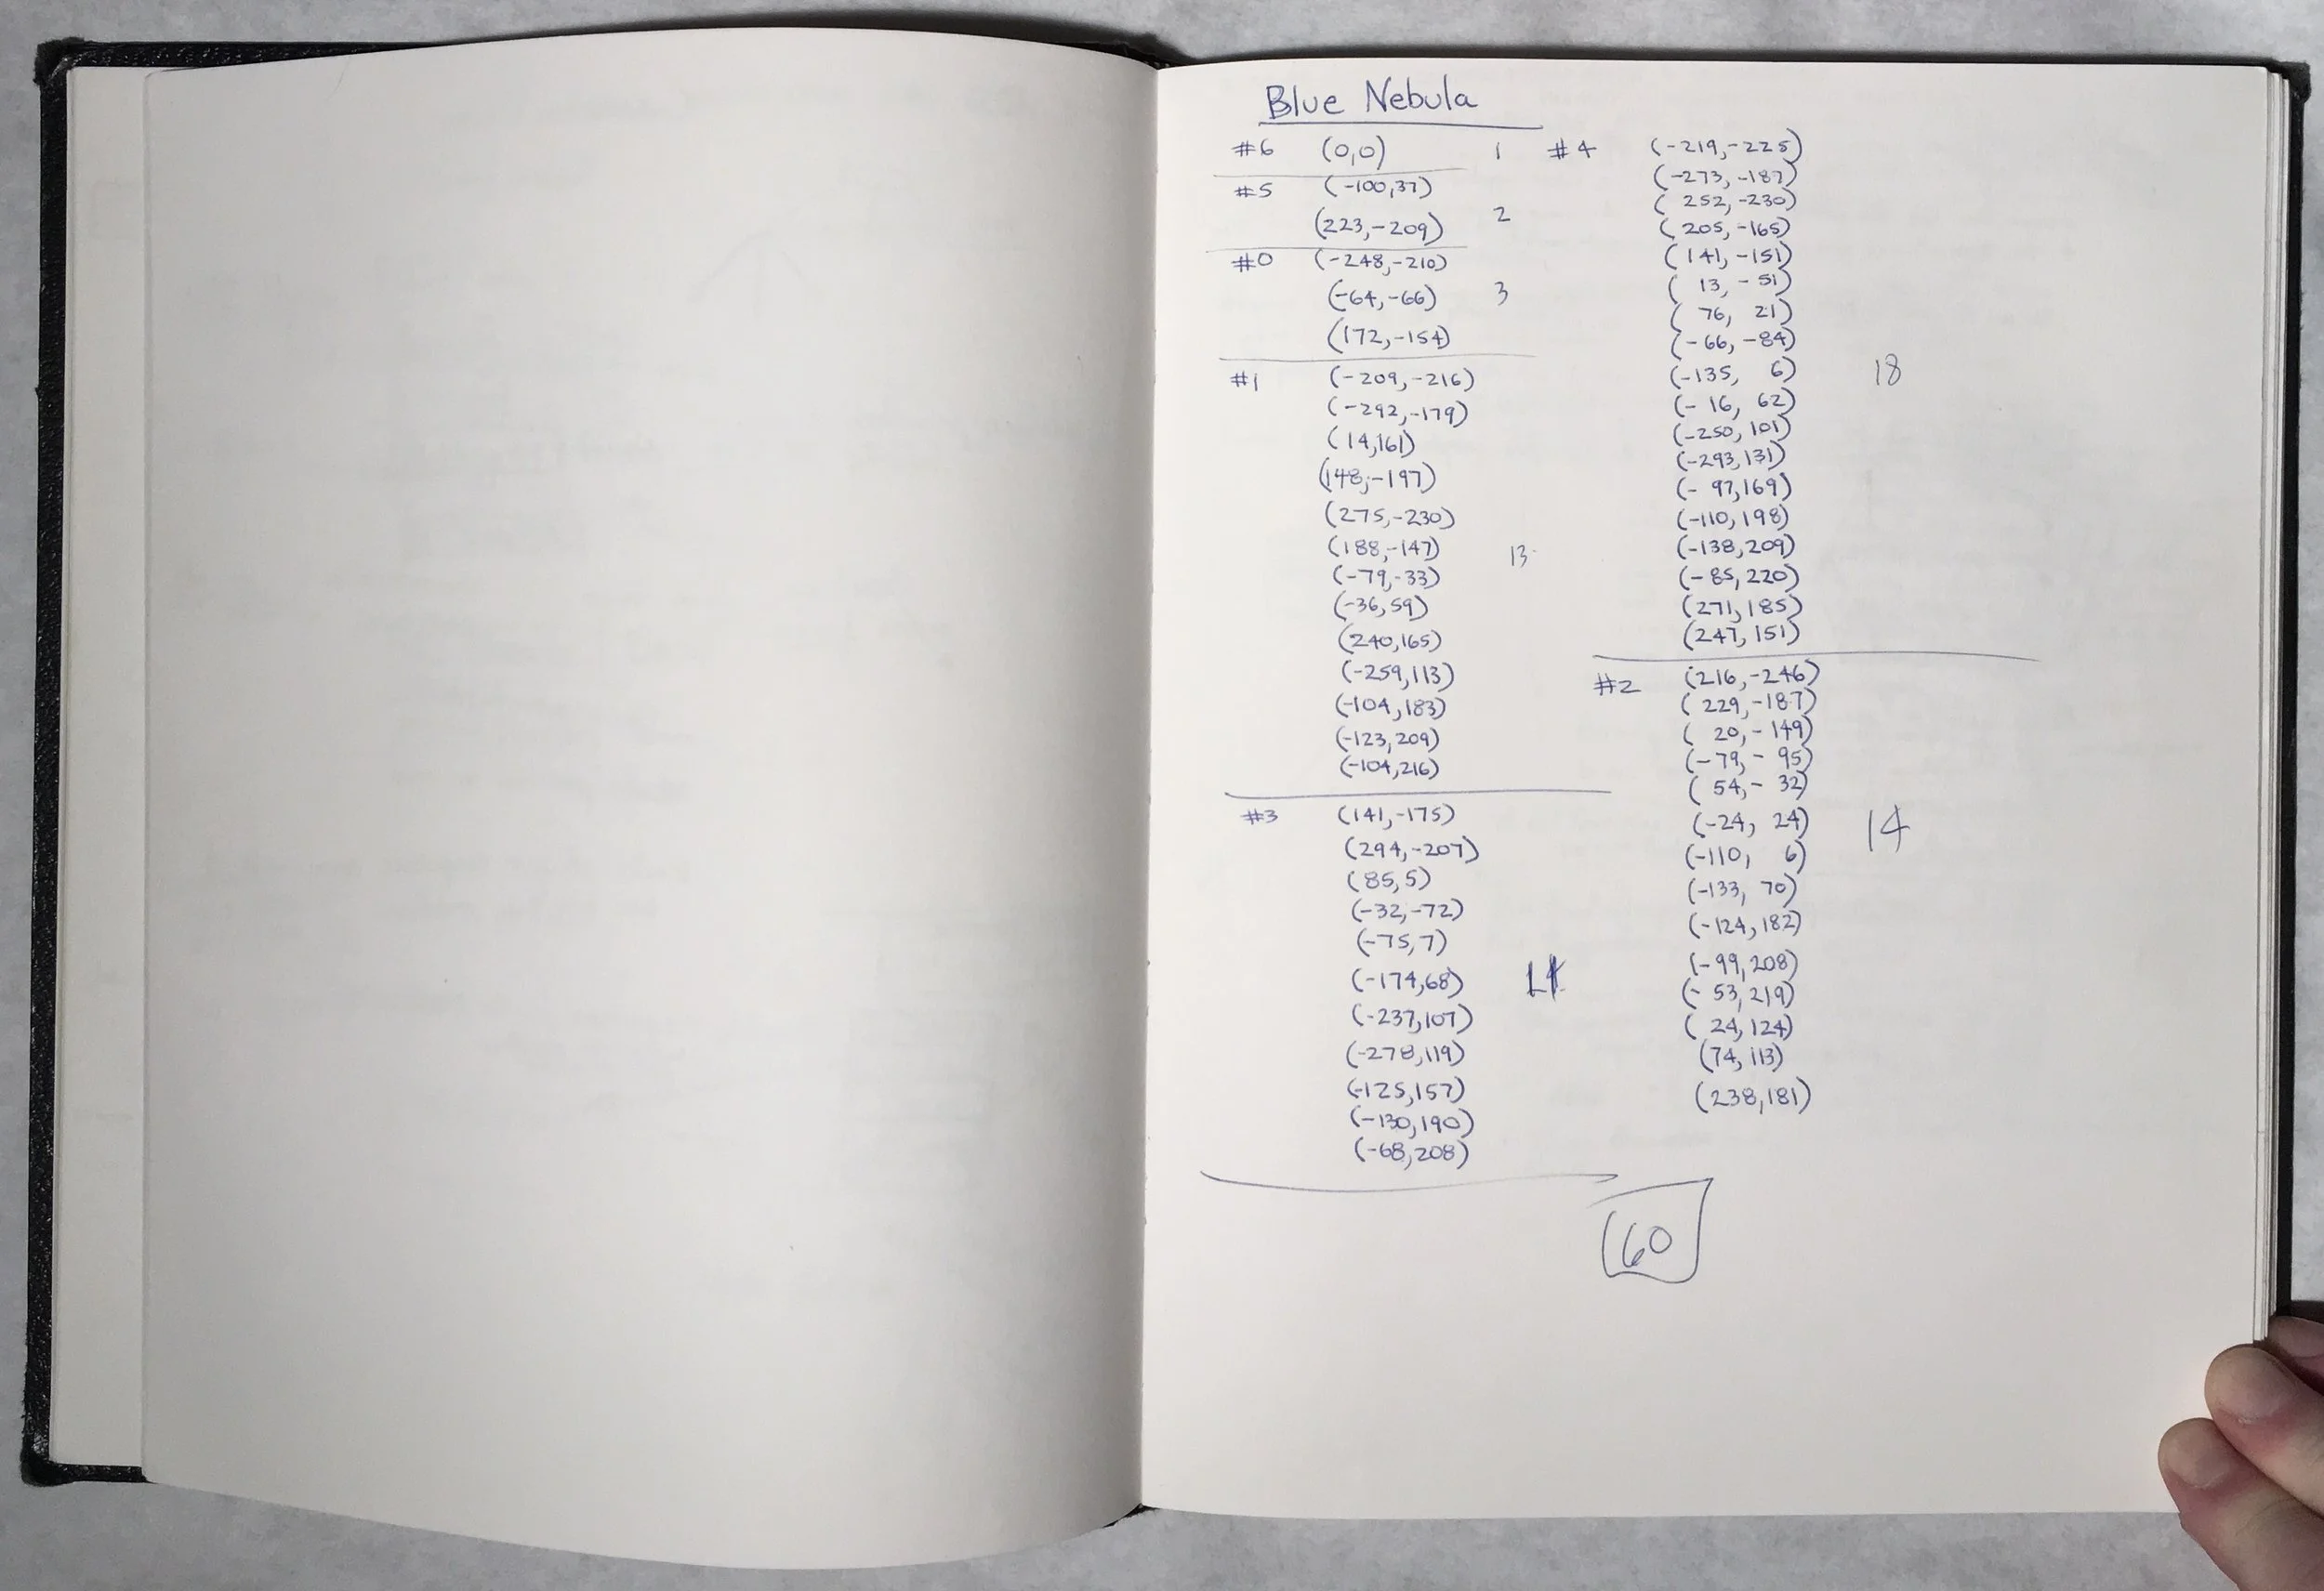 Blue Nebula
#6 (0,0) 1
#5 (-100,37)
(223,-209) 2
#0 (-248,-210)
(-64,-66) 3
(172,-154)
#1 (-209,-216)
(-292,-179)
(14,161)
(148,-197)
(275,-230)
(188,-147) 13
(-79,-33)
(-36,59)
(240,165)
(-259,113)
(-104,183)
(-123,209)
(-104,216)
#3 (141,-175)
(294,-207)
(85,5)
(-32,-72)
(-75,7)
(-174,68)
(-237,107)
(-278,119)
(-125,157)
(-130,190)
(-68,208)
#4 (-219,-225)
(-273,-187)
(252,-230)
(205,-165)
(141,-151)
(13,-51)
(76, 21)
(-66,-84)
(-135, 6) 18
(-16, 62)
(-250,101)
(-293,131)
(-97,169)
(-110,198)
(-138,209)
(-85,220)
(271,185)
(247,151)
#2 (216,-246)
(229,-187)
(20,-149)
(-79,-95)
(54,-32)
(-24, 24) 14
(-110, 6)
(-133, 70)
(-124,182)
(-99,208)
(-53,219)
(24,124)
(74,113)
(238,181)
60